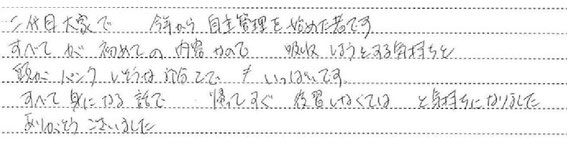 二代目大家で 今年から 自主管理を始めた者です
すべて が 初めての 内容 なので 吸収 しようとする気持ちと
頭が パンク しそうな で いっぱいです
すべて 身になる 話で 帰って すぐ 復習しなくては と気持ちになりました
ありがとう ございました